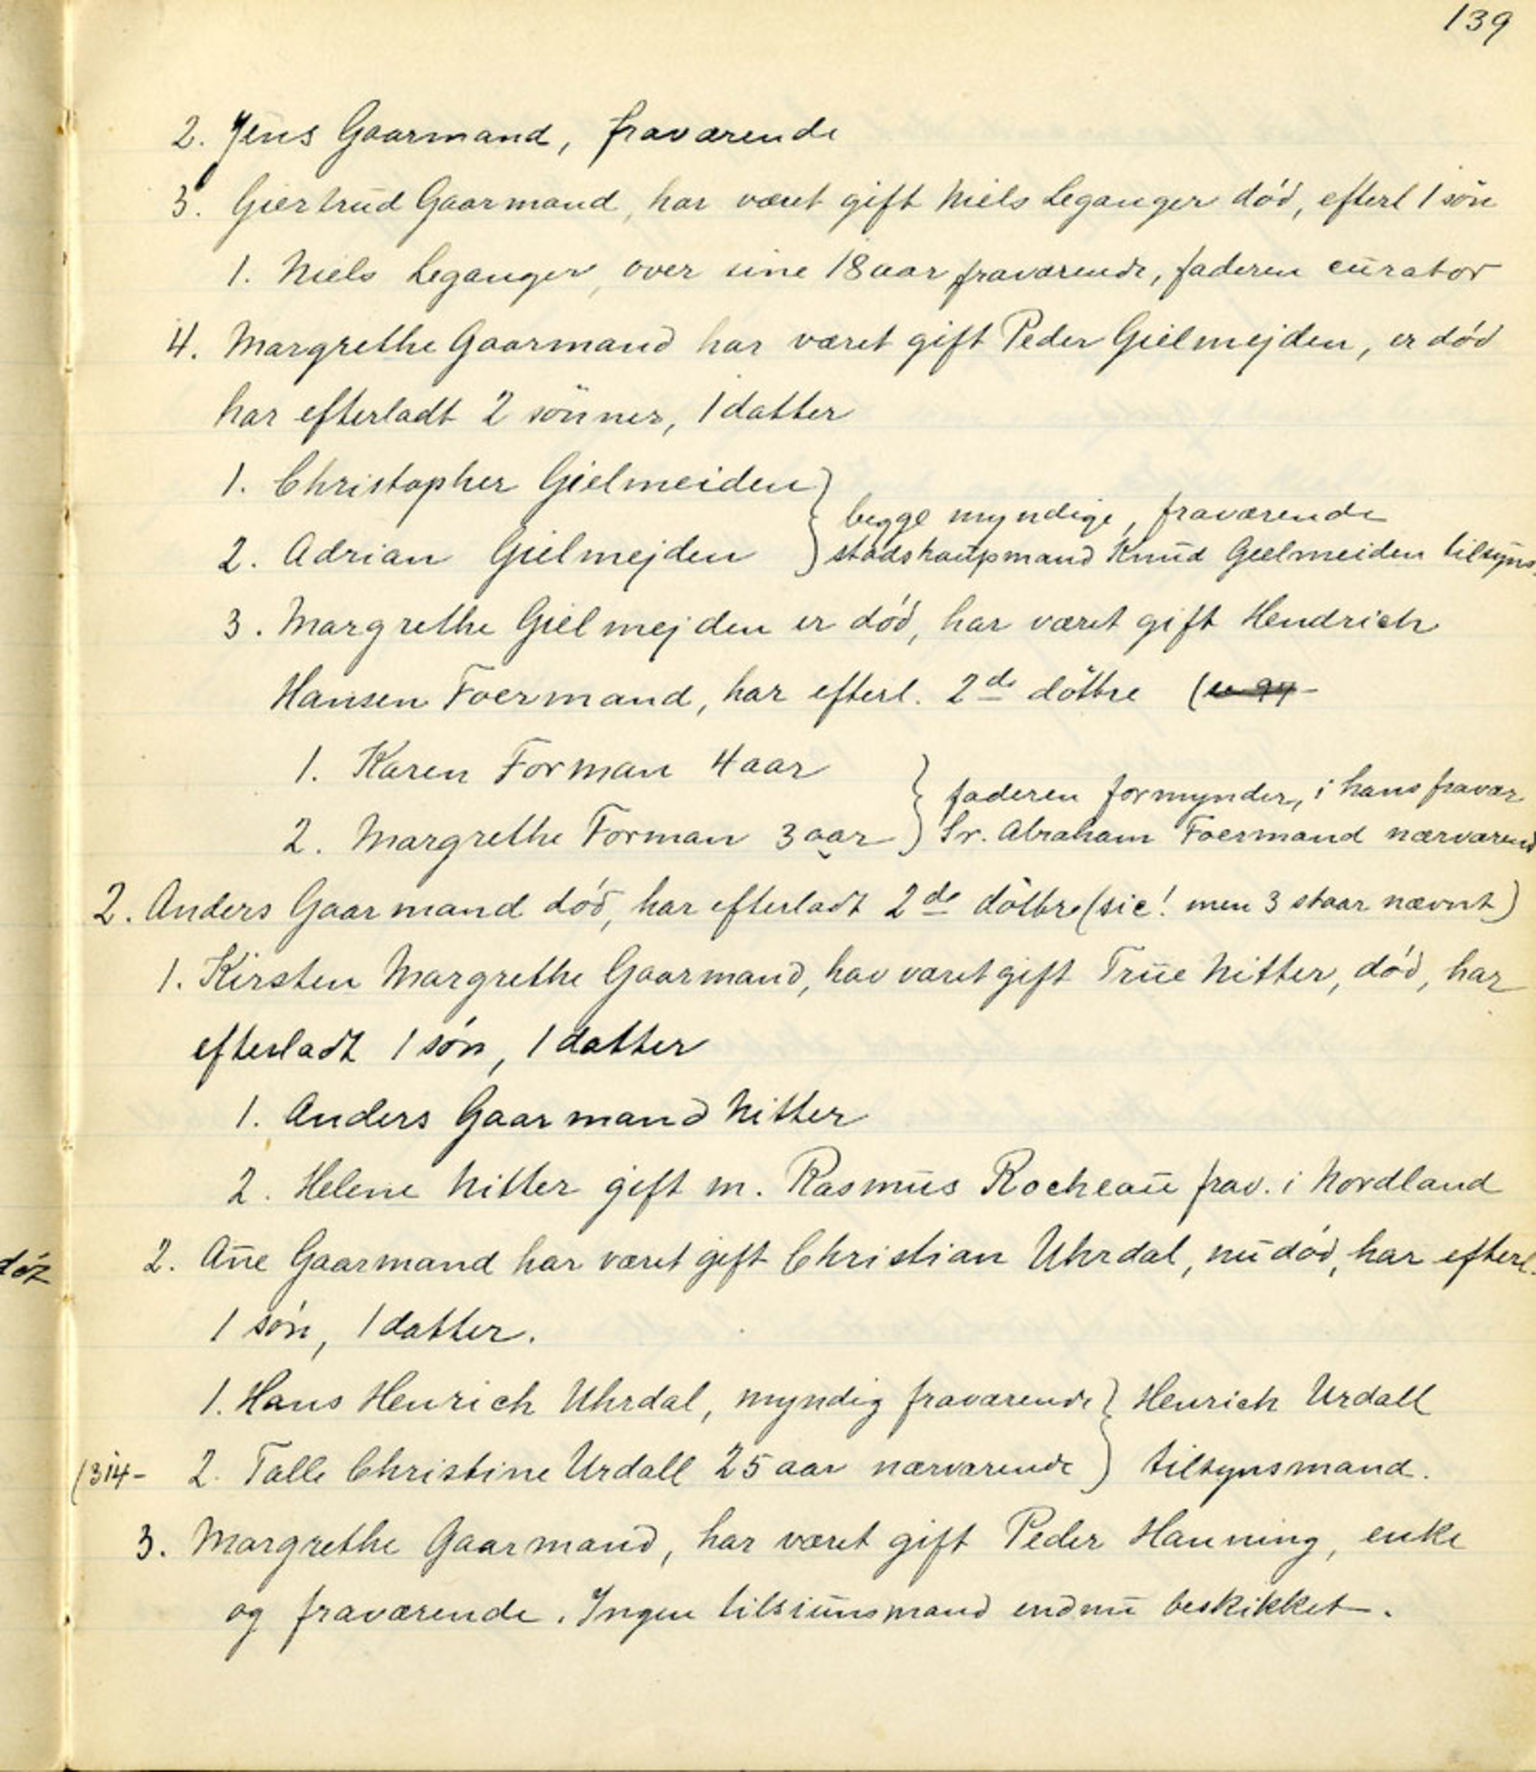 139
2. Jens Gaarmand, fraværende
3. Giertrud Gaarmand, har været gift Niels Leganger død, efterl 1 søn
1. Niels Leganger, over sine 18 aar fraværende, faderen curator
4. Margrethe Gaarmand har været gift Peder Gielmejden, er død
har efterladt 2 sönner, 1 datter
1. Christopher Gielmeiden
begge myndige, fraværende
2. Adrian Gielmejden
stadshaupmand Knud Gielmeiden tilsyns
3. Margrethe Gielmejden er død, har været gift Hendrich
Hansen Foermand, har efterl. 2de döttre (
1. Karen Forman 4 aar
faderen formynder, i hans fravær
2. Margrethe Forman 3 aar
Sr. Abraham Foermand nærværend
2. Anders Gaarmand død, har efterladt 2de döttre (sic! men 3 staar nævnt)
1. Kirsten Margrethe Gaarmand, har været gift True Nitter, død, har
efterladt 1 søn, 1 datter
1. Anders Gaarmand Nitter
2. Helene Nitter gift m. Rasmus Rocheau frav. i Nordland
2. Añe Gaarmand har været gift Christian Uhrdal, nu død, har efterl.
1 søn, 1 datter.
1. Hans Henrich Uhrdal, myndig fraværende Henrich Urdall
(314- 2. Talle Christine Urdall 25 aar nærværende tilsynsmand.
3. Margrethe Gaarmand, har været gift Peder Hanning, enke
og fraværende. Ingen tilsiunsmand endnu beskikket.